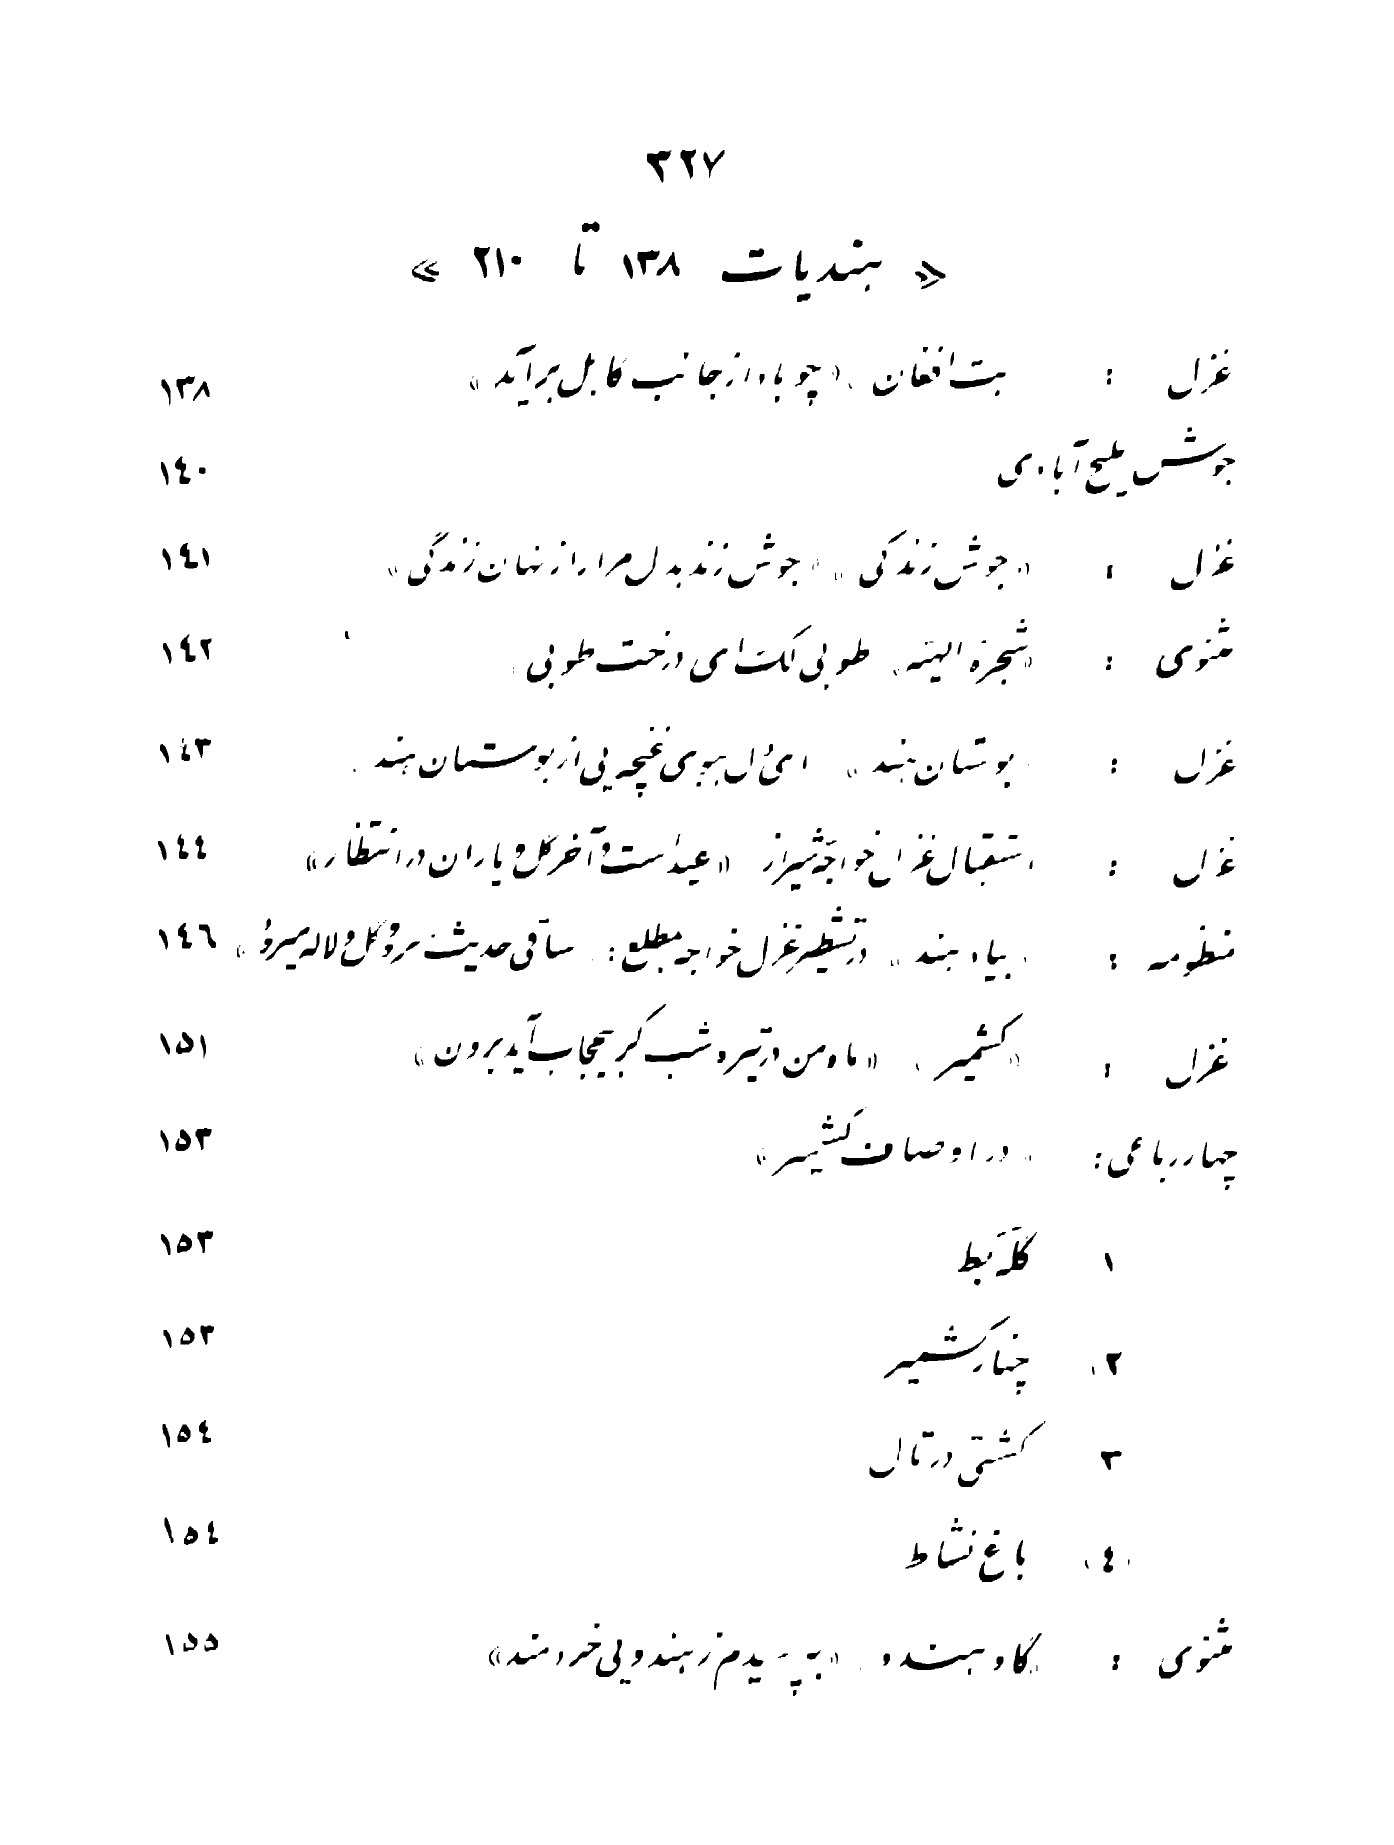 ۳۲۷
« هندیات ۱۳۸ تا ۲۱۰ »
غزل : بت افغان « چو ماه از جانب کابل برآید » ۱۳۸
جوش ملیح آبادی ۱۴۰
غزل : « جوش زندگی » « جوش زند بدل مرا راز نهان زندگی » ۱۴۱
مثنوی : « شجرة الهیه » طوبی لک ای درخت طوبی ۱۴۲
غزل : بوستان هند » ای دل ببوی غنچه یی از بوستان هند ۱۴۳
غزل : استقبال غزل خواجه شیراز « عید است و آخر گل و یاران در انتظار » ۱۴۴
منظومه : بیاد هند » در تشطیر غزل خواجه مطلع : ساقی حدیث سرو و گل و لاله میرود » ۱۴۶
غزل : « کشمیر » « ماه من در تیره شب گر بیحجاب آید برون » ۱۵۱
چهار رباعی : « در اوصاف کشمیر » ۱۵۳
۱ گلهٔ بط ۱۵۳
۲ چنار کشمیر ۱۵۳
۳ کشتی در تال ۱۵۴
۴ باغ نشاط ۱۵۴
مثنوی : « گاو هندو » « بپرسیدم ز هندویی خردمند » ۱۵۵